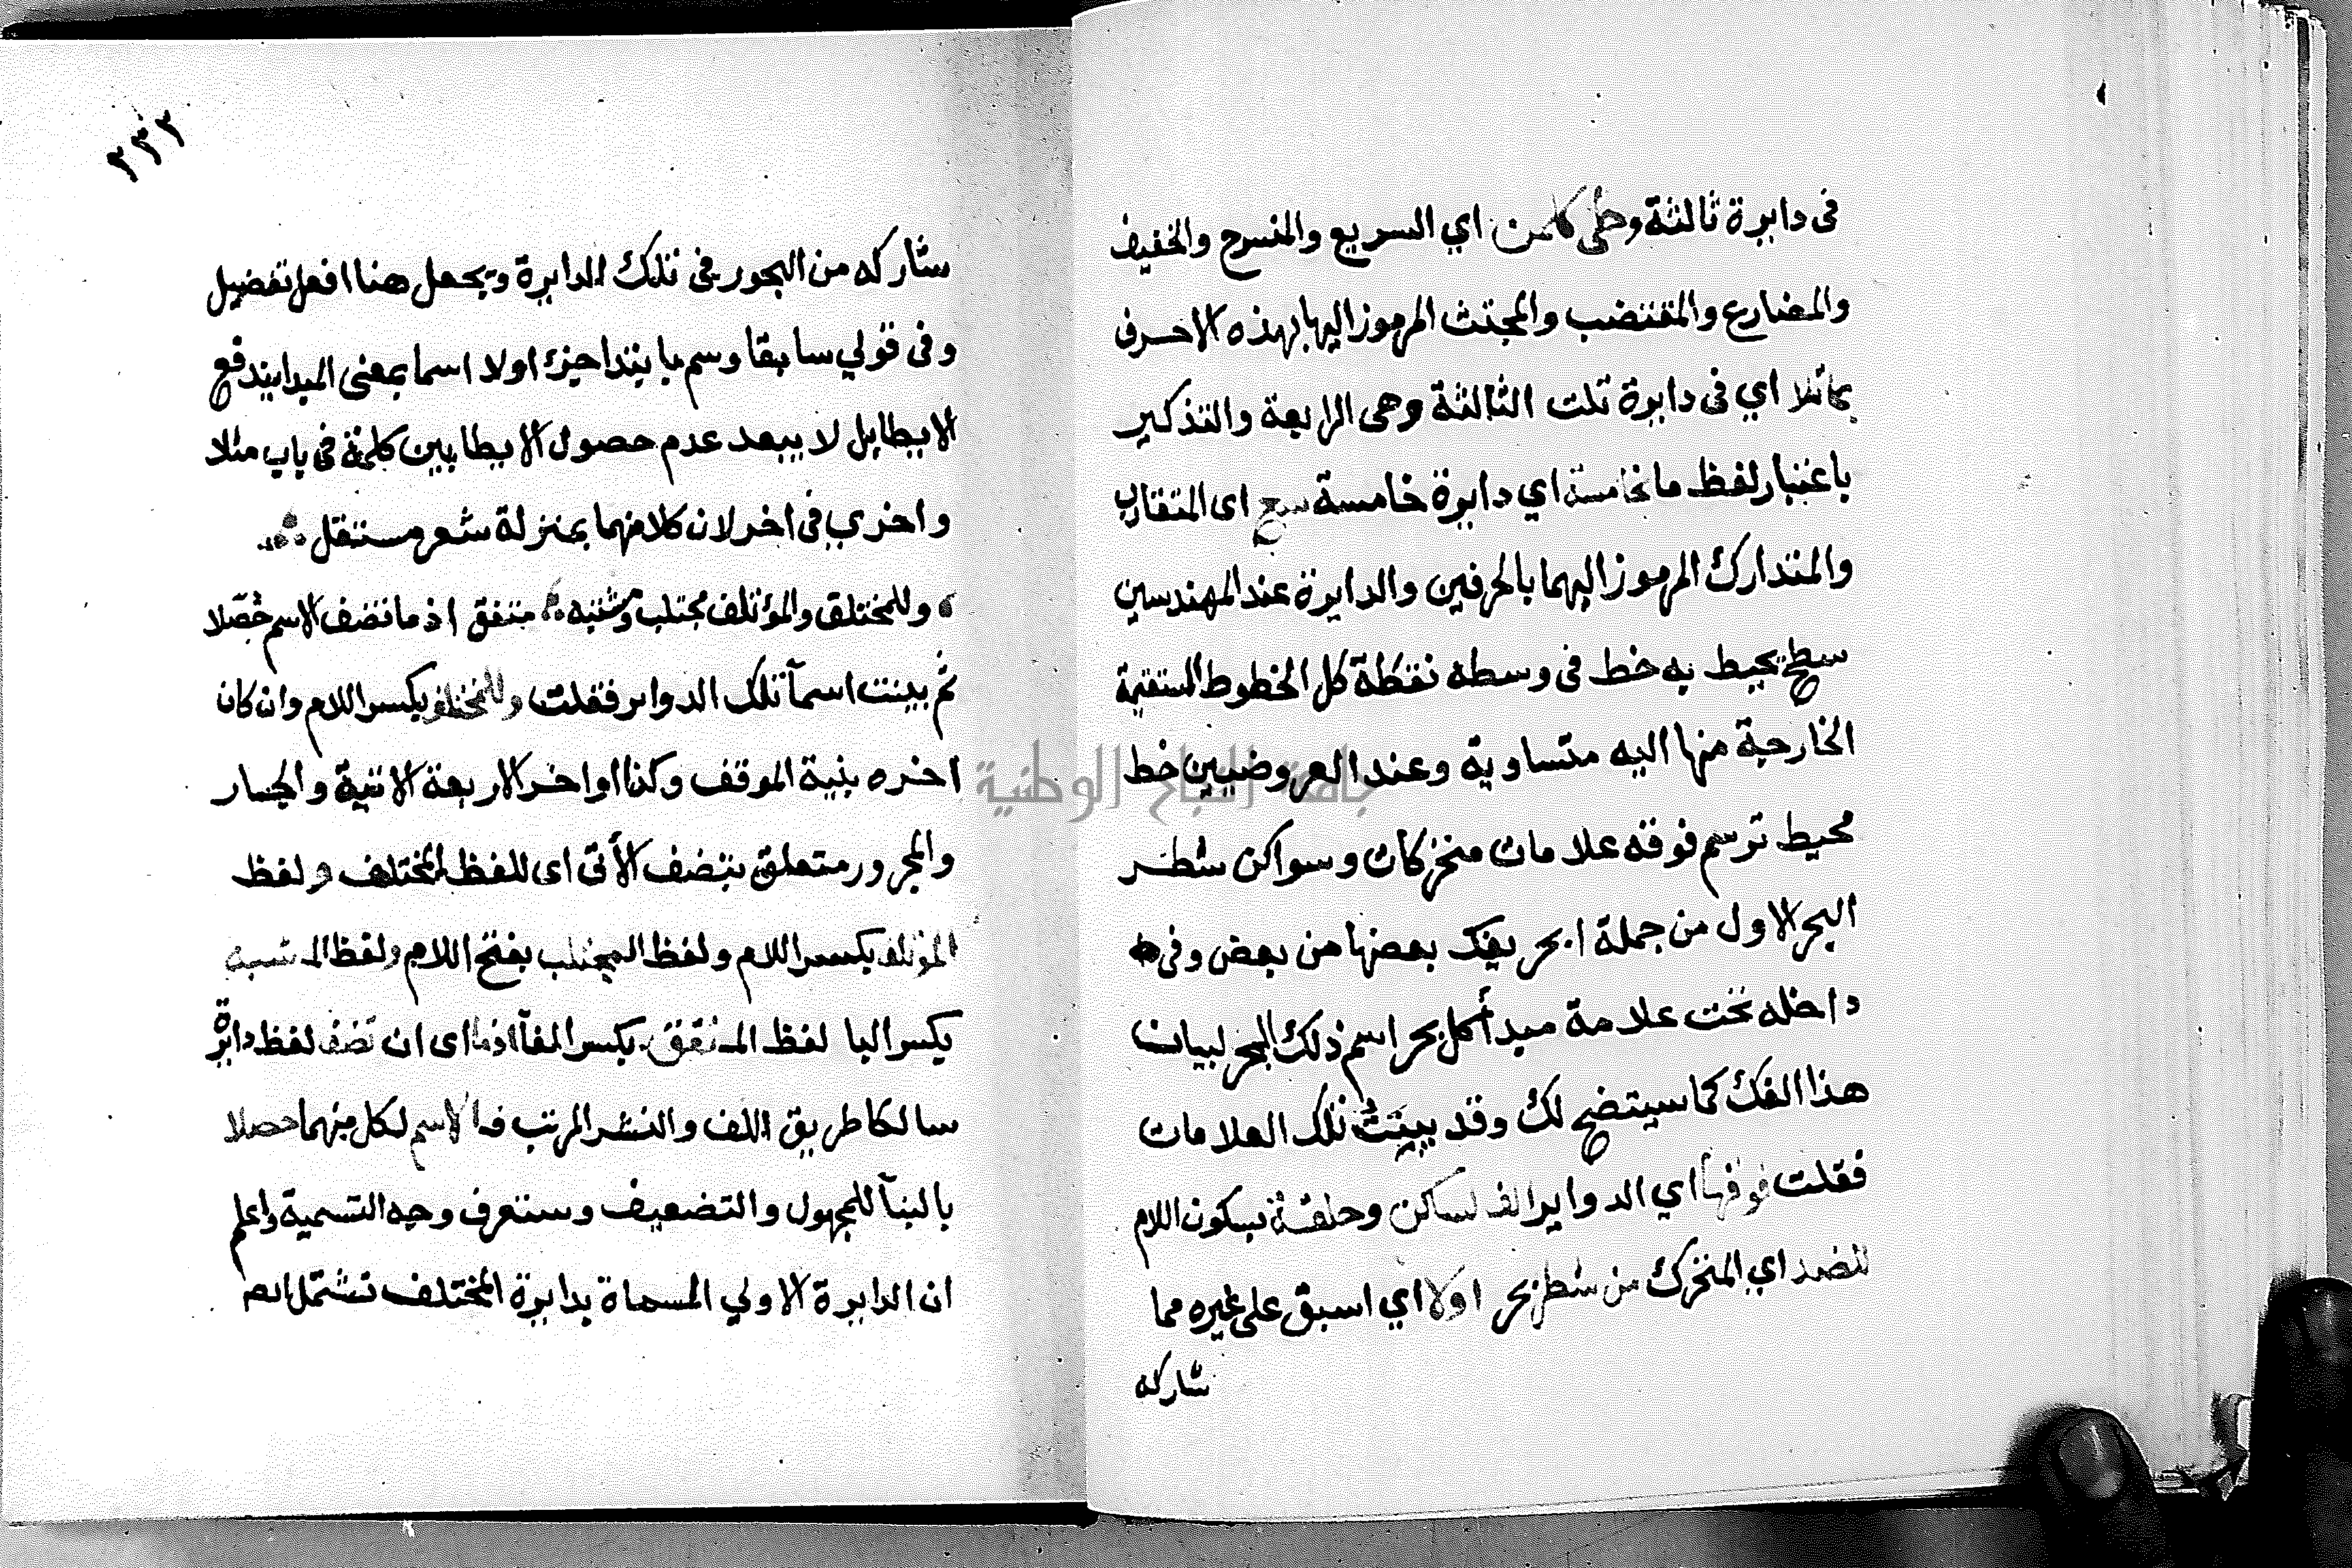 فى دايرة ثالثة وطى كلمن اي السريع والمنسرح والخفيف
والمضارع والمقتضب والمجتث المرموز اليها بهذه الاحرف
مماثلا اي فى دايرة تلت الثالثة وهى الرابعة والتذكير
باعتبار لفظ ما بخامسة اي دايرة خامسة سع اى المتقارب
والمتدارك المرموز اليهما بالحرفين والدايرة عند المهندسين
سطح يحيط به خط فى وسطه نقطة كل الخطوط المستقيمة
الخارجة منها اليه متساوية وعند العروضيين خط
محيط ترسم فوقه علامات متحركات وسواكن شطر
البحر الاول من جملة ابحر يفك بعضها من بعض وفى
داخله تحت علامة مبدأ كل بحر اسم ذلك البحر لبيان
هذا الفك كما سيتضح لك وقد بينت تلك العلامات
فقلت فوقها اي الدواير الف لساكن وحلقة بسكون اللام
للضد اي المتحرك من شطر بحر اولا اي اسبق على غيره مما
شاركه
٢٣٢
شاركه من البحور فى تلك الدايرة ويجعل هنا افعل تفضيل
وفى قولي سابقا وسم ما يبتدا حيزك اولا اسما بمعنى المبدا يندفع
الايطا بل لا يبعد عدم حصول الايطا بين كلمة فى باب مثلا
واخري فى اخر لان كلا منهما بمنزلة شعر مستقل
وللمختلق والمؤتلف مجتلب ومشتبه متفق اذ ما تضف الاسم حُصّلا
ثم بينت اسمآ تلك الدواير فقلت وللمختلف بكسر اللام وان كان
اخره بنية الموقف وكذا اواخر الاربعة الاتية والجار
والمجرور متعلق بتضف الأتى اى للفظ المختلف ولفظ
المؤتلف بكسر اللام ولفظ المجتلب بفتح اللام ولفظ المشتبه
بكسر البا لفظ المتفق بكسر الفآ اذ ما اى ان تضف لفظ دايرة
سالكا طريق اللف والنشر المرتب فالاسم لكل منهما حصلا
بالبنآ للمجهول والتضعيف وستعرف وجه التسمية واعلم
ان الدايرة الاولي المسماة بدايرة المختلف تشتمل
جامعة النجاح الوطنية